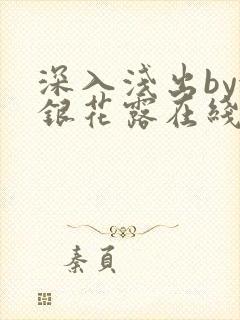 深入浅出by
銀花露在綫
秦頁